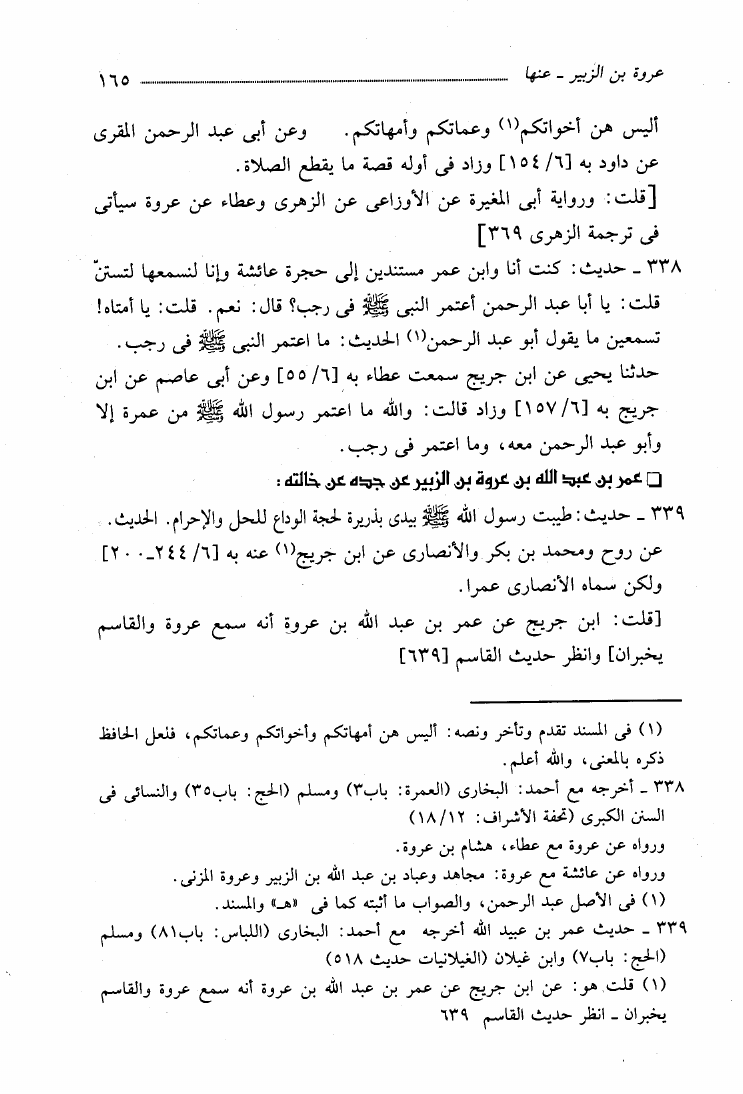 عروة بن الزبير ـ عنها ١٦٥
أليس هن أخواتكم(١) وعماتكم وأمهاتكم. وعن أبى عبد الرحمن المقرى
عن داود به [٦/ ١٥٤] وزاد فى أوله قصة ما يقطع الصلاة.
[قلت: ورواية أبى المغيرة عن الأوزاعى عن الزهرى وعطاء عن عروة سيأتى
فى ترجمة الزهرى ٣٦٩]
٣٣٨ ـ حديث: كنت أنا وابن عمر مستندين إلى حجرة عائشة وإنا لنسمعها لتستنّ
قلت: يا أبا عبد الرحمن أعتمر النبى ﷺ فى رجب؟ قال: نعم. قلت: يا أمتاه!
تسمعين ما يقول أبو عبد الرحمن(١) الحديث: ما اعتمر النبى ﷺ فى رجب.
حدثنا يحيى عن ابن جريج سمعت عطاء به [٦/ ٥٥] وعن أبى عاصم عن ابن
جريج به [٦/ ١٥٧] وزاد قالت: والله ما اعتمر رسول الله ﷺ من عمرة إلا
وأبو عبد الرحمن معه، وما اعتمر فى رجب.
❑ عمر بن عبد الله بن عروة بن الزبير عن جده عن خالته:
٣٣٩ ـ حديث: طيبت رسول الله ﷺ بيدى بذريرة لحجة الوداع للحل والإحرام. الحديث.
عن روح ومحمد بن بكر والأنصارى عن ابن جريج(١) عنه به [٦/ ٢٤٤ـ٢٠٠]
ولكن سماه الأنصارى عمرا.
[قلت: ابن جريج عن عمر بن عبد الله بن عروة أنه سمع عروة والقاسم
يخبران] وانظر حديث القاسم [٦٣٩]
(١) فى المسند تقدم وتأخر ونصه: أليس هن أمهاتكم وأخواتكم وعماتكم، فلعل الحافظ
ذكره بالمعنى، والله أعلم.
٣٣٨ ـ أخرجه مع أحمد: البخارى (العمرة: باب٣) ومسلم (الحج: باب٣٥) والنسائى فى
السنن الكبرى (تحفة الأشراف: ١٢/ ١٨)
ورواه عن عروة مع عطاء، هشام بن عروة.
ورواه عن عائشة مع عروة: مجاهد وعباد بن عبد الله بن الزبير وعروة المزنى.
(١) فى الأصل عبد الرحمن، والصواب ما أثبته كما فى «هـ» والمسند.
٣٣٩ ـ حديث عمر بن عبيد الله أخرجه مع أحمد: البخارى (اللباس: باب٨١) ومسلم
(الحج: باب٧) وابن غيلان (الغيلانيات حديث ٥١٨)
(١) قلت هو: عن ابن جريج عن عمر بن عبد الله بن عروة أنه سمع عروة والقاسم
يخبران ـ انظر حديث القاسم ٦٣٩